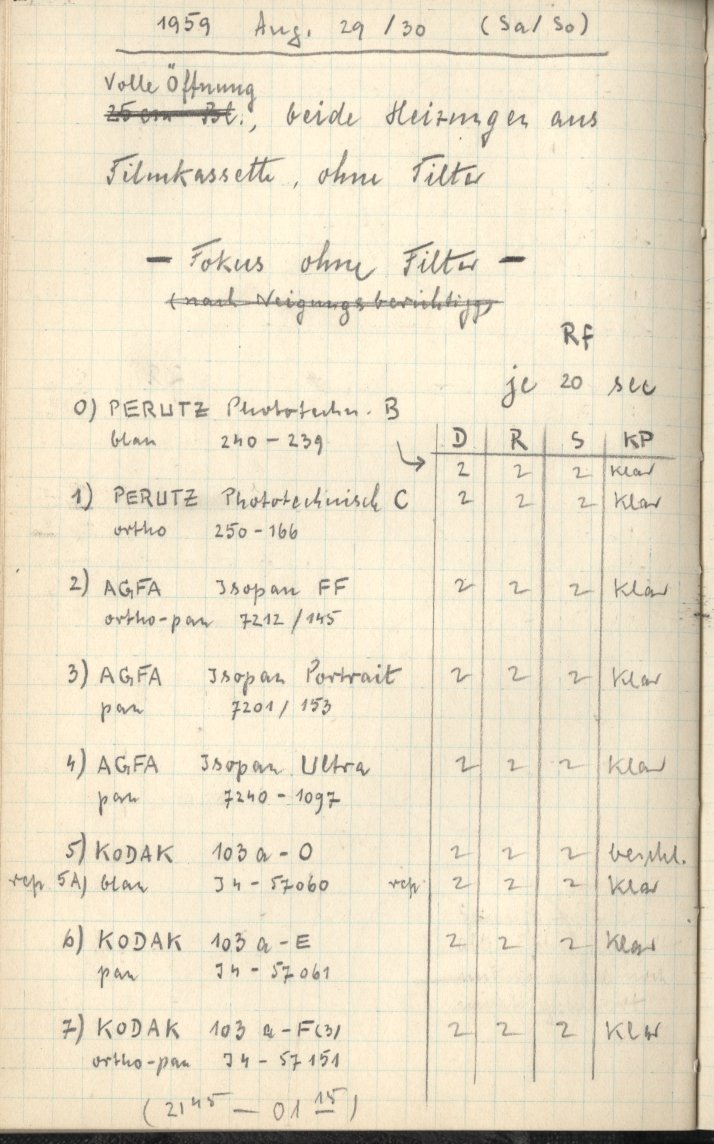 1959 Aug. 29/30 (Sa/So)
Volle Öffnung
25 cm Bl., beide Heizungen aus
Filmkassette, ohne Filter
- Fokus ohne Filter -
(nach Neigungsberichtigg)
Rf
je 20 sec
0) PERUTZ Phototechn. B
blau 240-239
D R S KP
2 2 2 Klar
1) PERUTZ Phototechnisch C 2 2 2 Klar
ortho 250-166
2) AGFA Isopan FF 2 2 2 Klar
ortho-pan 7212/145
3) AGFA Isopan Portrait 2 2 2 Klar
pan 7201/153
4) AGFA Isopan Ultra 2 2 2 Klar
pan 7240-1097
5) KODAK 103 a-O 2 2 2 beschl.
rep 5A) blau J4-57060 rep 2 2 2 Klar
6) KODAK 103 a-E 2 2 2 Klar
pan J4-57061
7) KODAK 103 a-F(3) 2 2 2 Klar
ortho-pan J4-57151
(21 45 — 01 15)